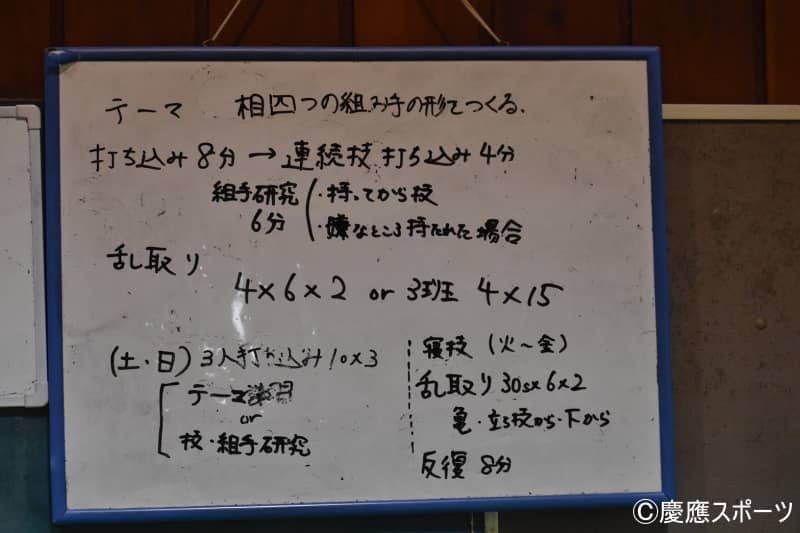 テーマ 相四つの組み手の形をつくる.
打ち込み 8分 → 連続技 打ち込み 4分
組手研究 ・持ってから技
6分 ・嫌なところ持たれた場合
乱取り
4×6×2 or 3班 4×15
(土・日) 3人打ち込み 10×3
テーマ
or
技・組手研究
寝技 (火〜金)
乱取り 30s×6×2
亀・立ち技から・下から
反復 8分
©慶應スポーツ